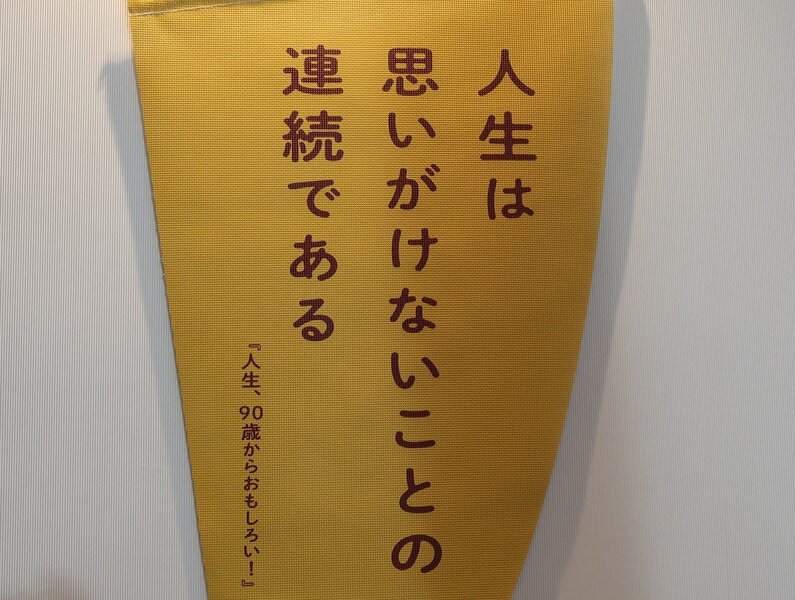 人生は
思いがけないことの
連続である
『人生、90歳からおもしろい！』